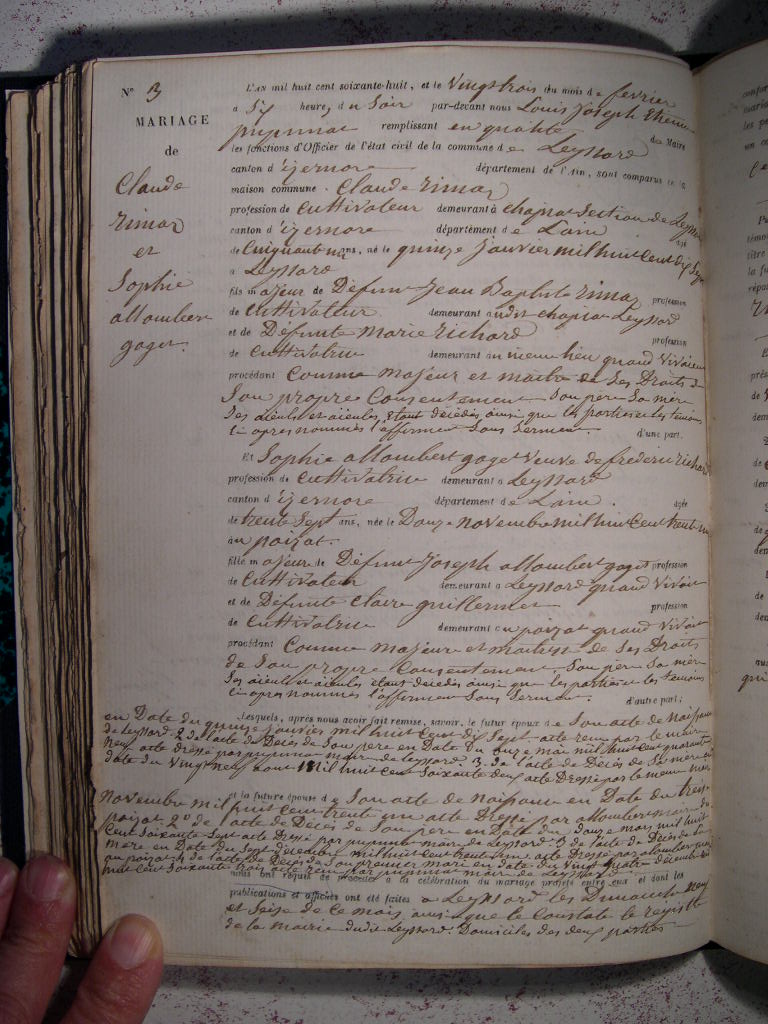 N° 3
MARIAGE
de
Claude
rimaz
et
Sophie
allombert
goget.
L'AN mil huit cent soixante-huit, et le Vingt trois du mois de fevrier
a Six heure, du Soir par-devant nous Louis Joseph Etienne
remplissant en qualité de Maire
les fonctions d'Officier de l'état civil de la commune de Leyssard
canton d'izernore département de l'Ain, sont comparus en la
maison commune. Claude rimaz
profession de Cultivateur demeurant à chapiat Section de Leyssard
canton d'izernore département de Lain agé
de Cinquante un ans, né le quinze janvier mil huit Cent dix Sept
a Leyssard
fils majeur de Défunt Jean Baptiste rimaz profession
de Cultivateur demeurant audit chapiat Leyssard
et de Défunte marie richard profession
de Cultivatrice demeurant au meme lieu quand Vivaient
procédant Comme majeur et maitre de Ses Droits de
Son propre Consentement Son pere Sa mère
Ses aieuls et aieules etant décédés ainsi que les parties et les temoins
Ci apres nommés l'affirment Sous Serment. d'une part.
Et Sophie allombert goget Veuve de frederic richard
profession de Cultivatrice demeurant a Leyssard
canton d'izernore département de Lain. agée
de trente Sept ans, née le Douze novembre mil huit Cent trente un
au poizat.
fille majeure de Défunt Joseph allombert goget profession
de Cultivateur demeurant a Leyssard quand Vivait
et de Défunte Claire guillermet profession
de Cultivatrice demeurant au poizat quand Vivait
procédant Comme majeure et maitresse de Ses Droits
de Son propre Consentement. Son pere Sa mère
Ses aieuls et aieules etant décédés ainsi que les parties et les temoins
Ci apres nommés l'affirment Sous Serment. d'autre part;
Lesquels, après nous avoir fait remise, savoir, le futur époux de Son acte de naissance
en Date du quinze janvier mil huit Cent dix Sept acte reçu par le maire
de Leyssard. 2° de l'acte de Décès de Son pere en Date du onze mai mil huit Cent quarante
neuf acte dressé par maire de Leyssard 3° de l'acte de Décès de Sa mère en
date du Vingt neuf aout mil huit Cent Soixante deux acte Dressé par le meme maire
et la future épouse de Son acte de naissance en Date du treize
novembre mil huit Cent trente un acte Dressé par allombert maire du
poizat 2° de l'acte de Décès de Son pere en Date du Douze mars mil huit
Cent Soixante Sept acte Dressé par maire de Leyssard 3° de l'acte de Décès de Sa
mère en Date du Sept mil huit Cent trente acte Dressé par allombert maire
au poizat 4° de l'acte de Décès de Son premier mari en Date du Vingt quatre décembre
mil huit Cent Soixante trois acte reçu par maire de Leyssard
nous ont requis de procéder à la célébration du mariage projeté entre eux et dont les
publications et affiches ont été faites a Leyssard les Dimanche neuf
et Seize de Ce mois ainsi que le Constate le registre
de la mairie dudit Leyssard. Domiciles des deux parties